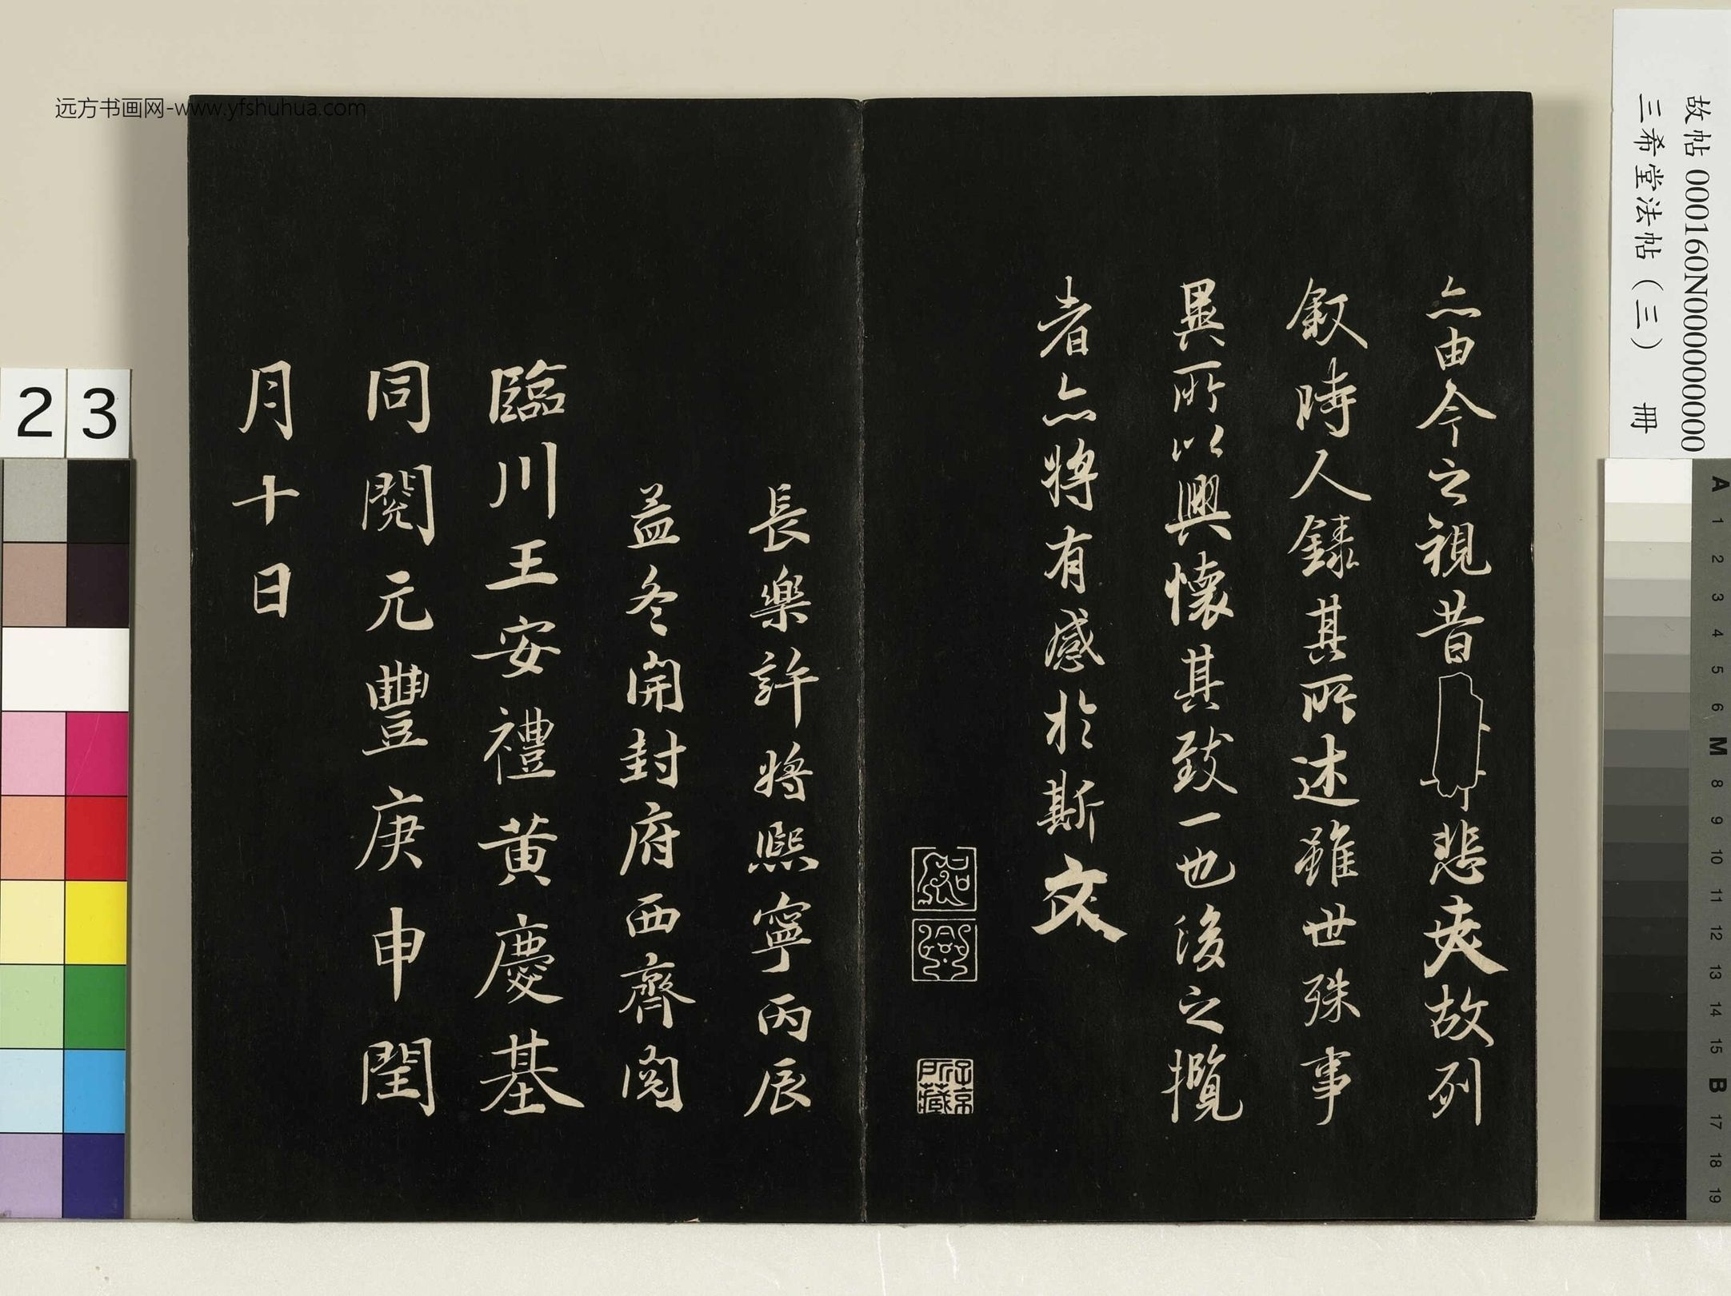 远方书画网-www.yfshuhua.com
故帖 000160N000000000
三希堂法帖（三） 冊
亦由今之視昔悲夫故列
叙時人錄其所述雖世殊事
異所以興懷其致一也後之攬
者亦將有感於斯文
子京所藏
長樂許將熙寧丙辰
孟冬開封府西齋閱
臨川王安禮黃慶基
同閱元豐庚申閏
月十日
23
A 1 2 3 4 5 6 M 8 9 10 11 12 13 14 15 B 17 18 19